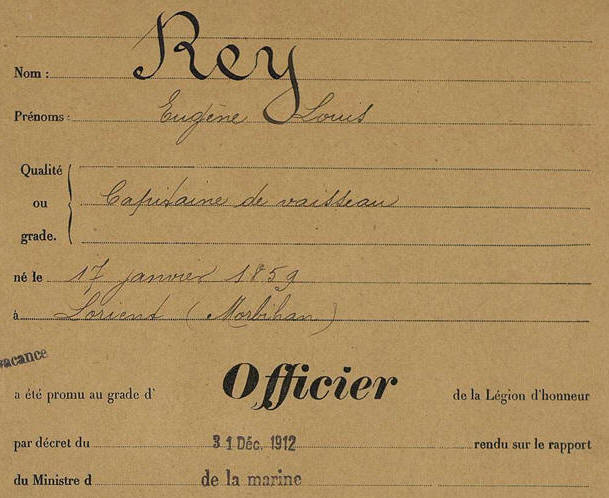 Nom : Rey
Prénoms : Eugène Louis
Qualité
ou Capitaine de vaisseau
grade.
né le 17 janvier 1859
à Lorient (Morbihan)
vacance
a été promu au grade d' Officier de la Légion d'honneur
par décret du 31 Déc. 1912 rendu sur le rapport
du Ministre d de la marine